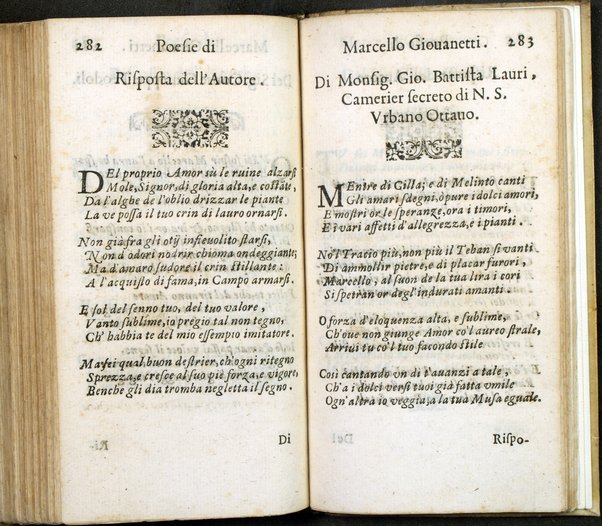 282 Poesie di
Risposta dell'Autore.
DEl proprio Amor sù le ruine alzarsi
Mole, Signor, di gloria alta, e costāte,
Da l'alghe de l'oblio drizzar le piante
La ve possa il tuo crin di lauro ornarsi.
Non già fra gli otij infieuolito starsi,
N'on d'odori nodrir chioma ondeggiante;
Ma d'amaro sudore il crin stillante:
A l'acquisto di fama, in Campo armarsi.
E sol del senno tuo, del tuo valore,
Vanto sublime, io pregio tal non tegno,
Ch'habbia te del mio essempio imitatore.
Ma sei qual buon destrier, ch'ogni ritegno
Sprezza, e cresce al suo piè forza, e vigore,
Benche gli dia tromba negletta il segno.
Di
Marcello Giouanetti. 283
Di Monsig. Gio. Battista Lauri,
Camerier secreto di N. S.
Vrbano Ottauo.
MEntre di Cilla, e di Melinto canti
Gli amari sdegni, ò pure i dolci amori,
E mostri or le speranze, ora i timori,
E i vari affetti d'allegrezza, e i pianti.
No'l Tracio più, non più il Teban si vanti
Di ammollir pietre, e di placar furori,
Marcello, al suon de la tua lira i cori
Si spetran or degl'indurati amanti.
O forza d'eloquenza alta, e sublime,
Ch'oue non giunge Amor co'l aureo strale,
Arriui tu co'l tuo facondo stile
Così cantando vn dì t'auanzi a tale,
Ch'a i dolci versi tuoi già fatta vmile
Ogn'altra io veggia, a la tua Musa eguale.
Rispo-